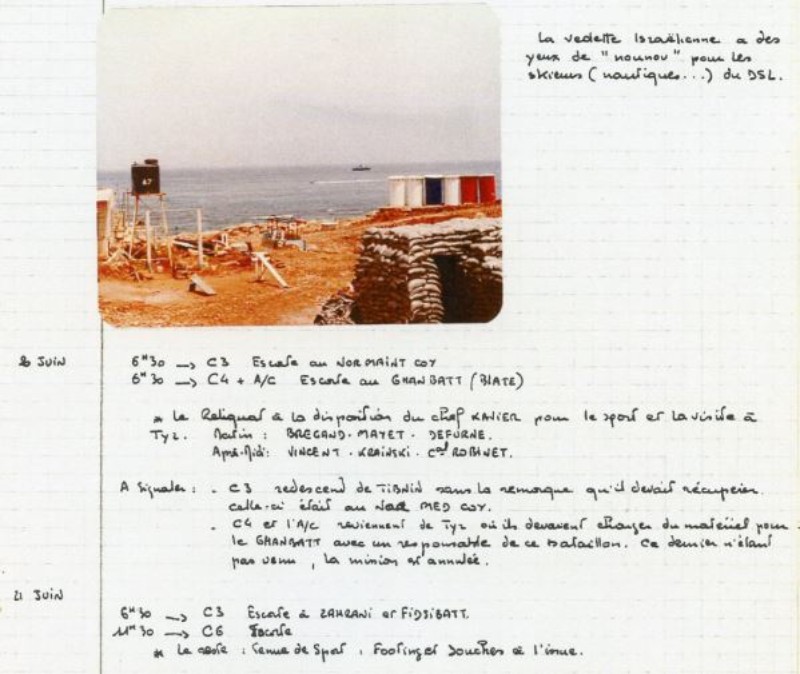 La vedette Israëlienne a des
yeux de "nounou" pour les
skieurs (nautiques...) du DSL.
67
20 JUIN
6H30 → C3 Escorte au NORMAINT COY
6H30 → C4 + A/C Escorte au GHANBATT (BIATE)
* Le Reliquat à la disposition du chef XAVIER pour le sport et la visite à
TYR. Matin : BREGAND - MAYET - DEFURNE.
Après-Midi : VINCENT - KRAINSKI - Cal ROBINET.
A Signaler : . C3 redescend de TIBNIN sans la remorque qu'il devait récupérer.
celle-ci était au NOR MED COY.
. C4 et l'A/C reviennent de Tyr où ils devaient charger du matériel pour
le GHANBATT avec un responsable de ce bataillon. Ce dernier n'étant
pas venu, la mission est annulée.
21 JUIN
6H30 → C3 Escorte à ZAHRANI et FIDJIBATT.
11H30 → C6 Escorte
* Le reste : Tenue de Sport, Footing et Douches à l'issue.